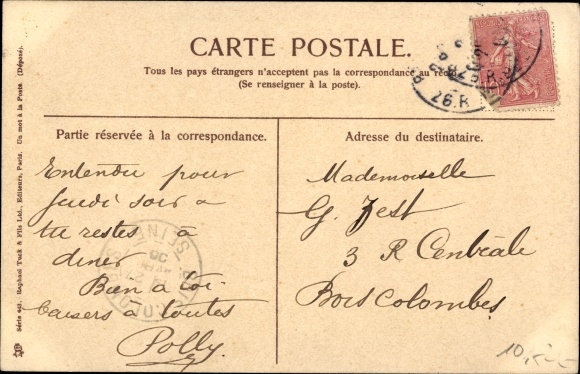 CARTE POSTALE.
Tous les pays étrangers n'acceptent pas la correspondance au
(Se renseigner à la poste).
Partie réservée à la correspondance.
Entendu pour
jeudi soir
tu restes à
diner
Bien à toi
baisers à toutes
Polly.
Adresse du destinataire.
Mademoiselle
G. Zest
3 R Centrale
Bois Colombes
Série 441. Raphael Tuck & Fils Ltd., Editeurs, Paris. Un mot à la Poste. (Déposé).
SEINE
26.R
10